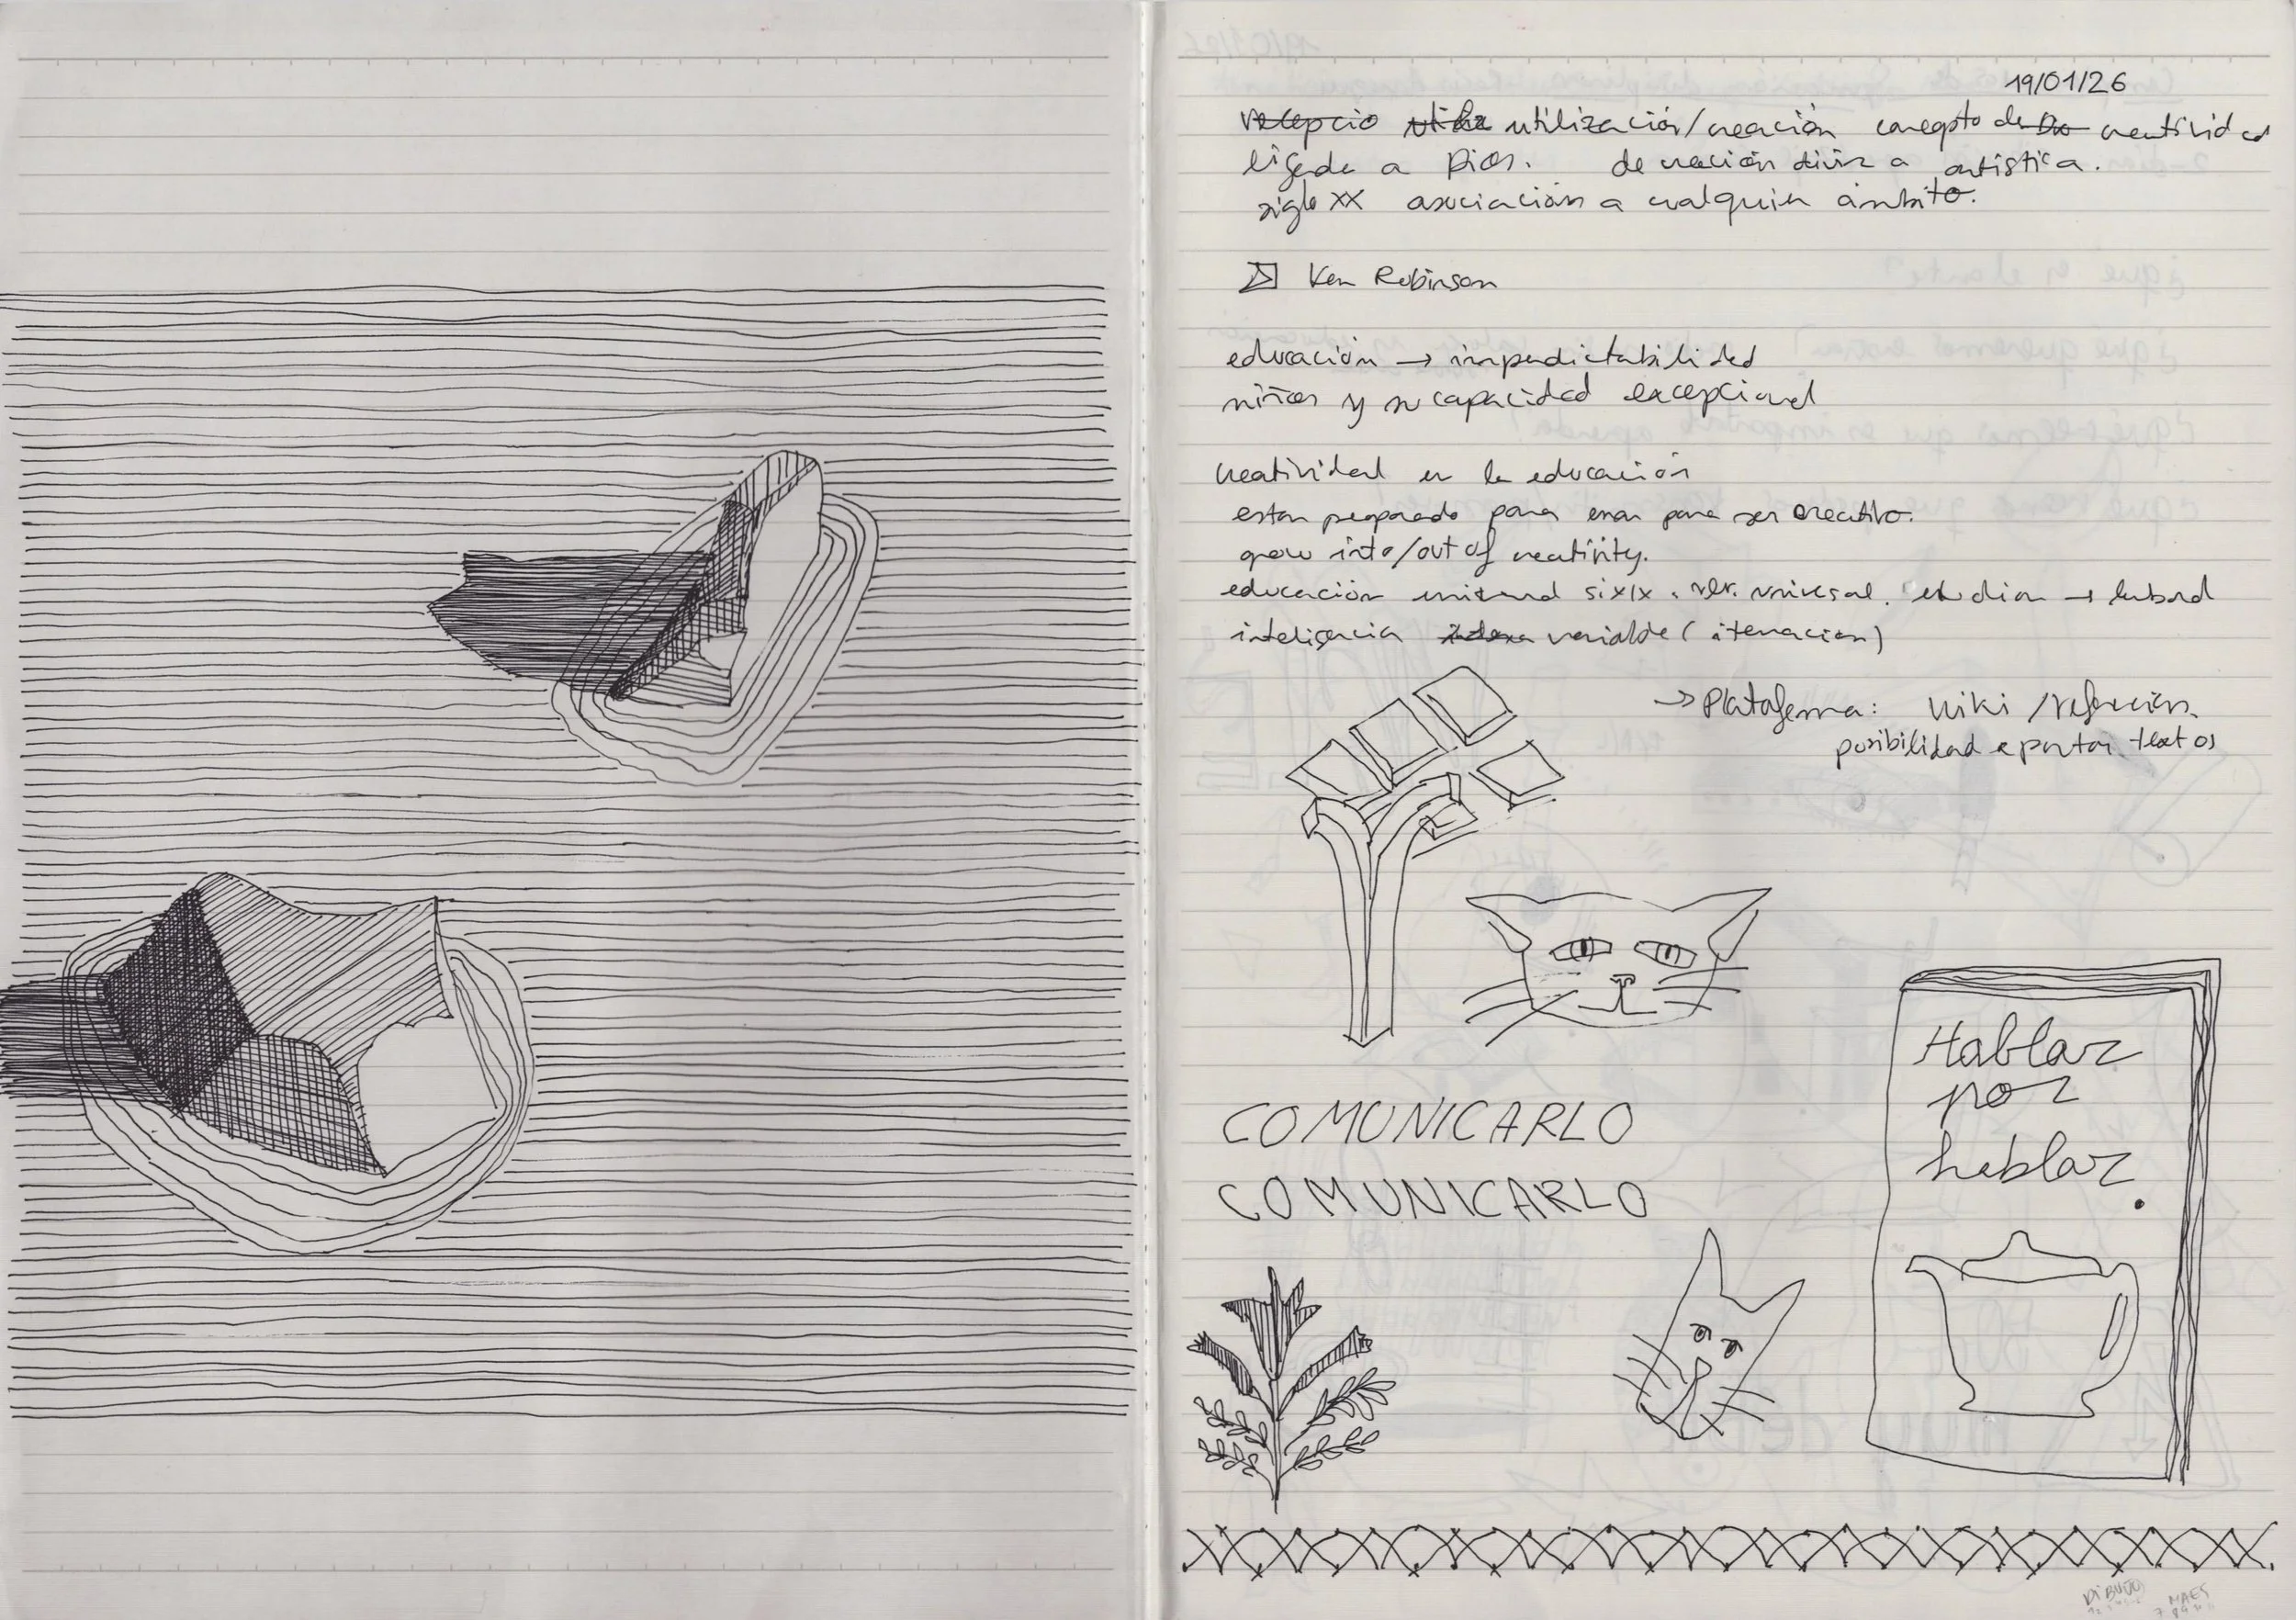 19/01/26
utilización/creación concepto de creatividad
ligada a Dios. de creación divina a artística.
siglo XX asociación a cualquier ámbito.
Ken Robinson
educación → impredictabilidad
niños y su capacidad excepcional
creatividad en la educación
estar preparado para errar para ser creativo.
grow into/out of creativity.
educación universal s.XIX . universal. estudiar → laboral
inteligencia variable (iteración)
→ Plataforma: Wiki /
posibilidad aportar textos
COMUNICARLO
COMUNICARLO
Hablar
por
hablar.
DIBUJO
MAES